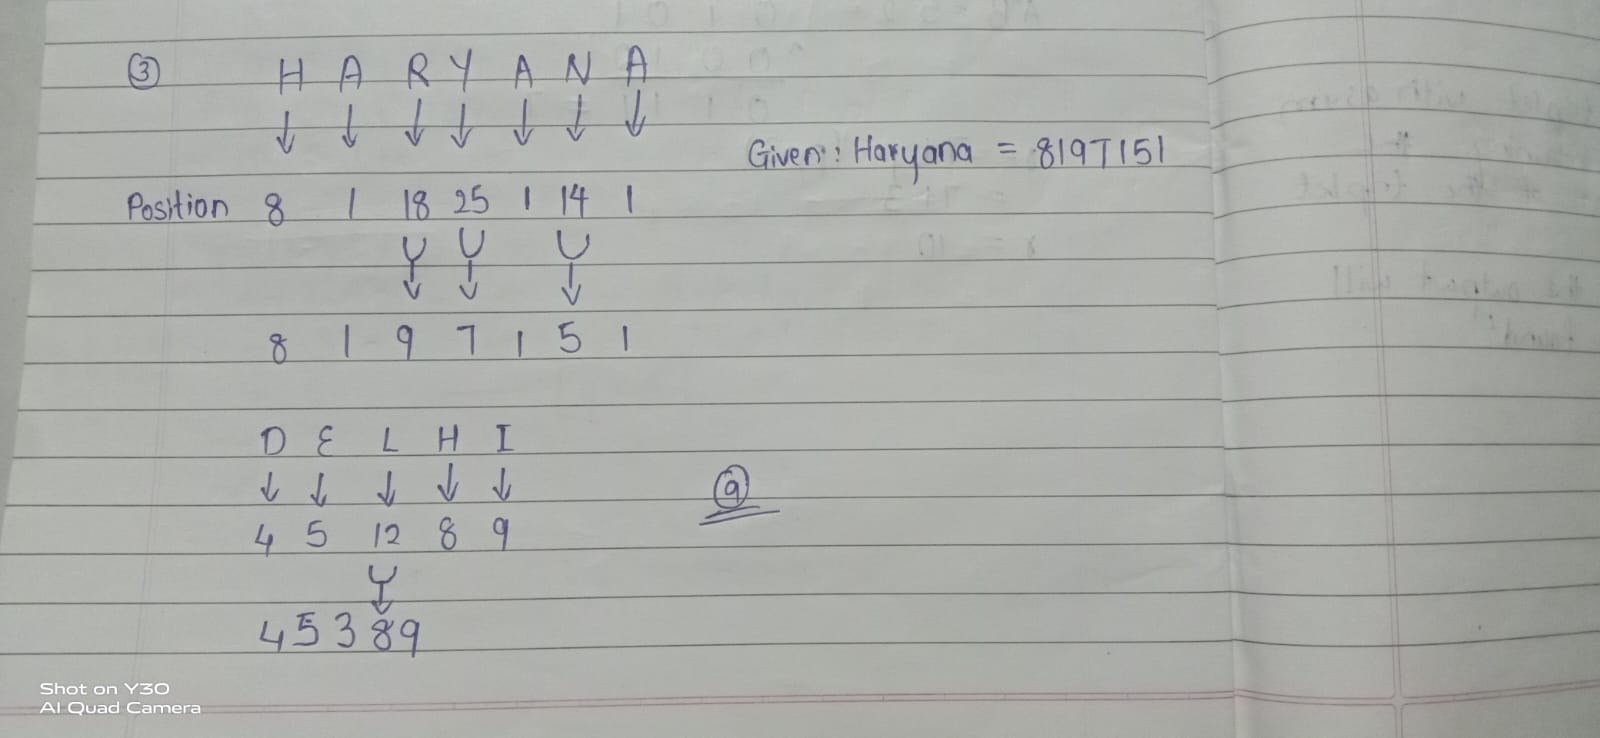 ③ H A R Y A N A
Given: Haryana = 8197151
Position 8 1 18 25 1 14 1
8 1 9 7 1 5 1
D E L H I
4 5 12 8 9
ⓐ
45389
Shot on Y30
AI Quad Camera